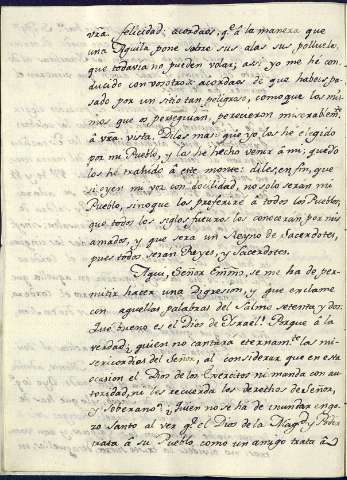 vra. felicidad; acordaos, q.e â la manera que
una Aguila pone sobre sus alas sus polluelos,
que todavia no pueden volar; asi yo me hé con-
ducido con vosotros: acordaos de que habeis pa-
sado por un sitio tan peligroso, como que los mis-
mos que os perseguian, perecieron miserablem.te
â vra. vista. Diles mas: que yo los hé elegido
por mi Pueblo, y los hé hecho venir â mi; que yo
los hé trahido â este monte: diles, en fin, que
si oyen mi voz con docilidad, no solo seran mi
Pueblo, sino que los preferiré â todos los Pueblos,
que todos los siglos futuros los conoceran por mis
amados, y que sera un Reyno de Sacerdotes,
pues todos serán Reyes, y Sacerdotes.
Aqui, Señor Emmo, se me ha de per-
mitir hacer una digresion, y que exclame
con aquellas palabras del Salmo setenta y dos:
Qué bueno es el Dios de Israel! Porque â la
verdad, quien no cantara eternam.te las mi-
sericordias del Señor, al considerar que en esta
ocasion el Dios de los Exercitos ni manda con au-
toridad, ni les recuerda los derechos de Señor,
y Soberano? Quien no se ha de inundar en go-
zo Santo al ver q.e el Dios de la Mag.d y Poder
trata â su Pueblo, como un amigo trata â